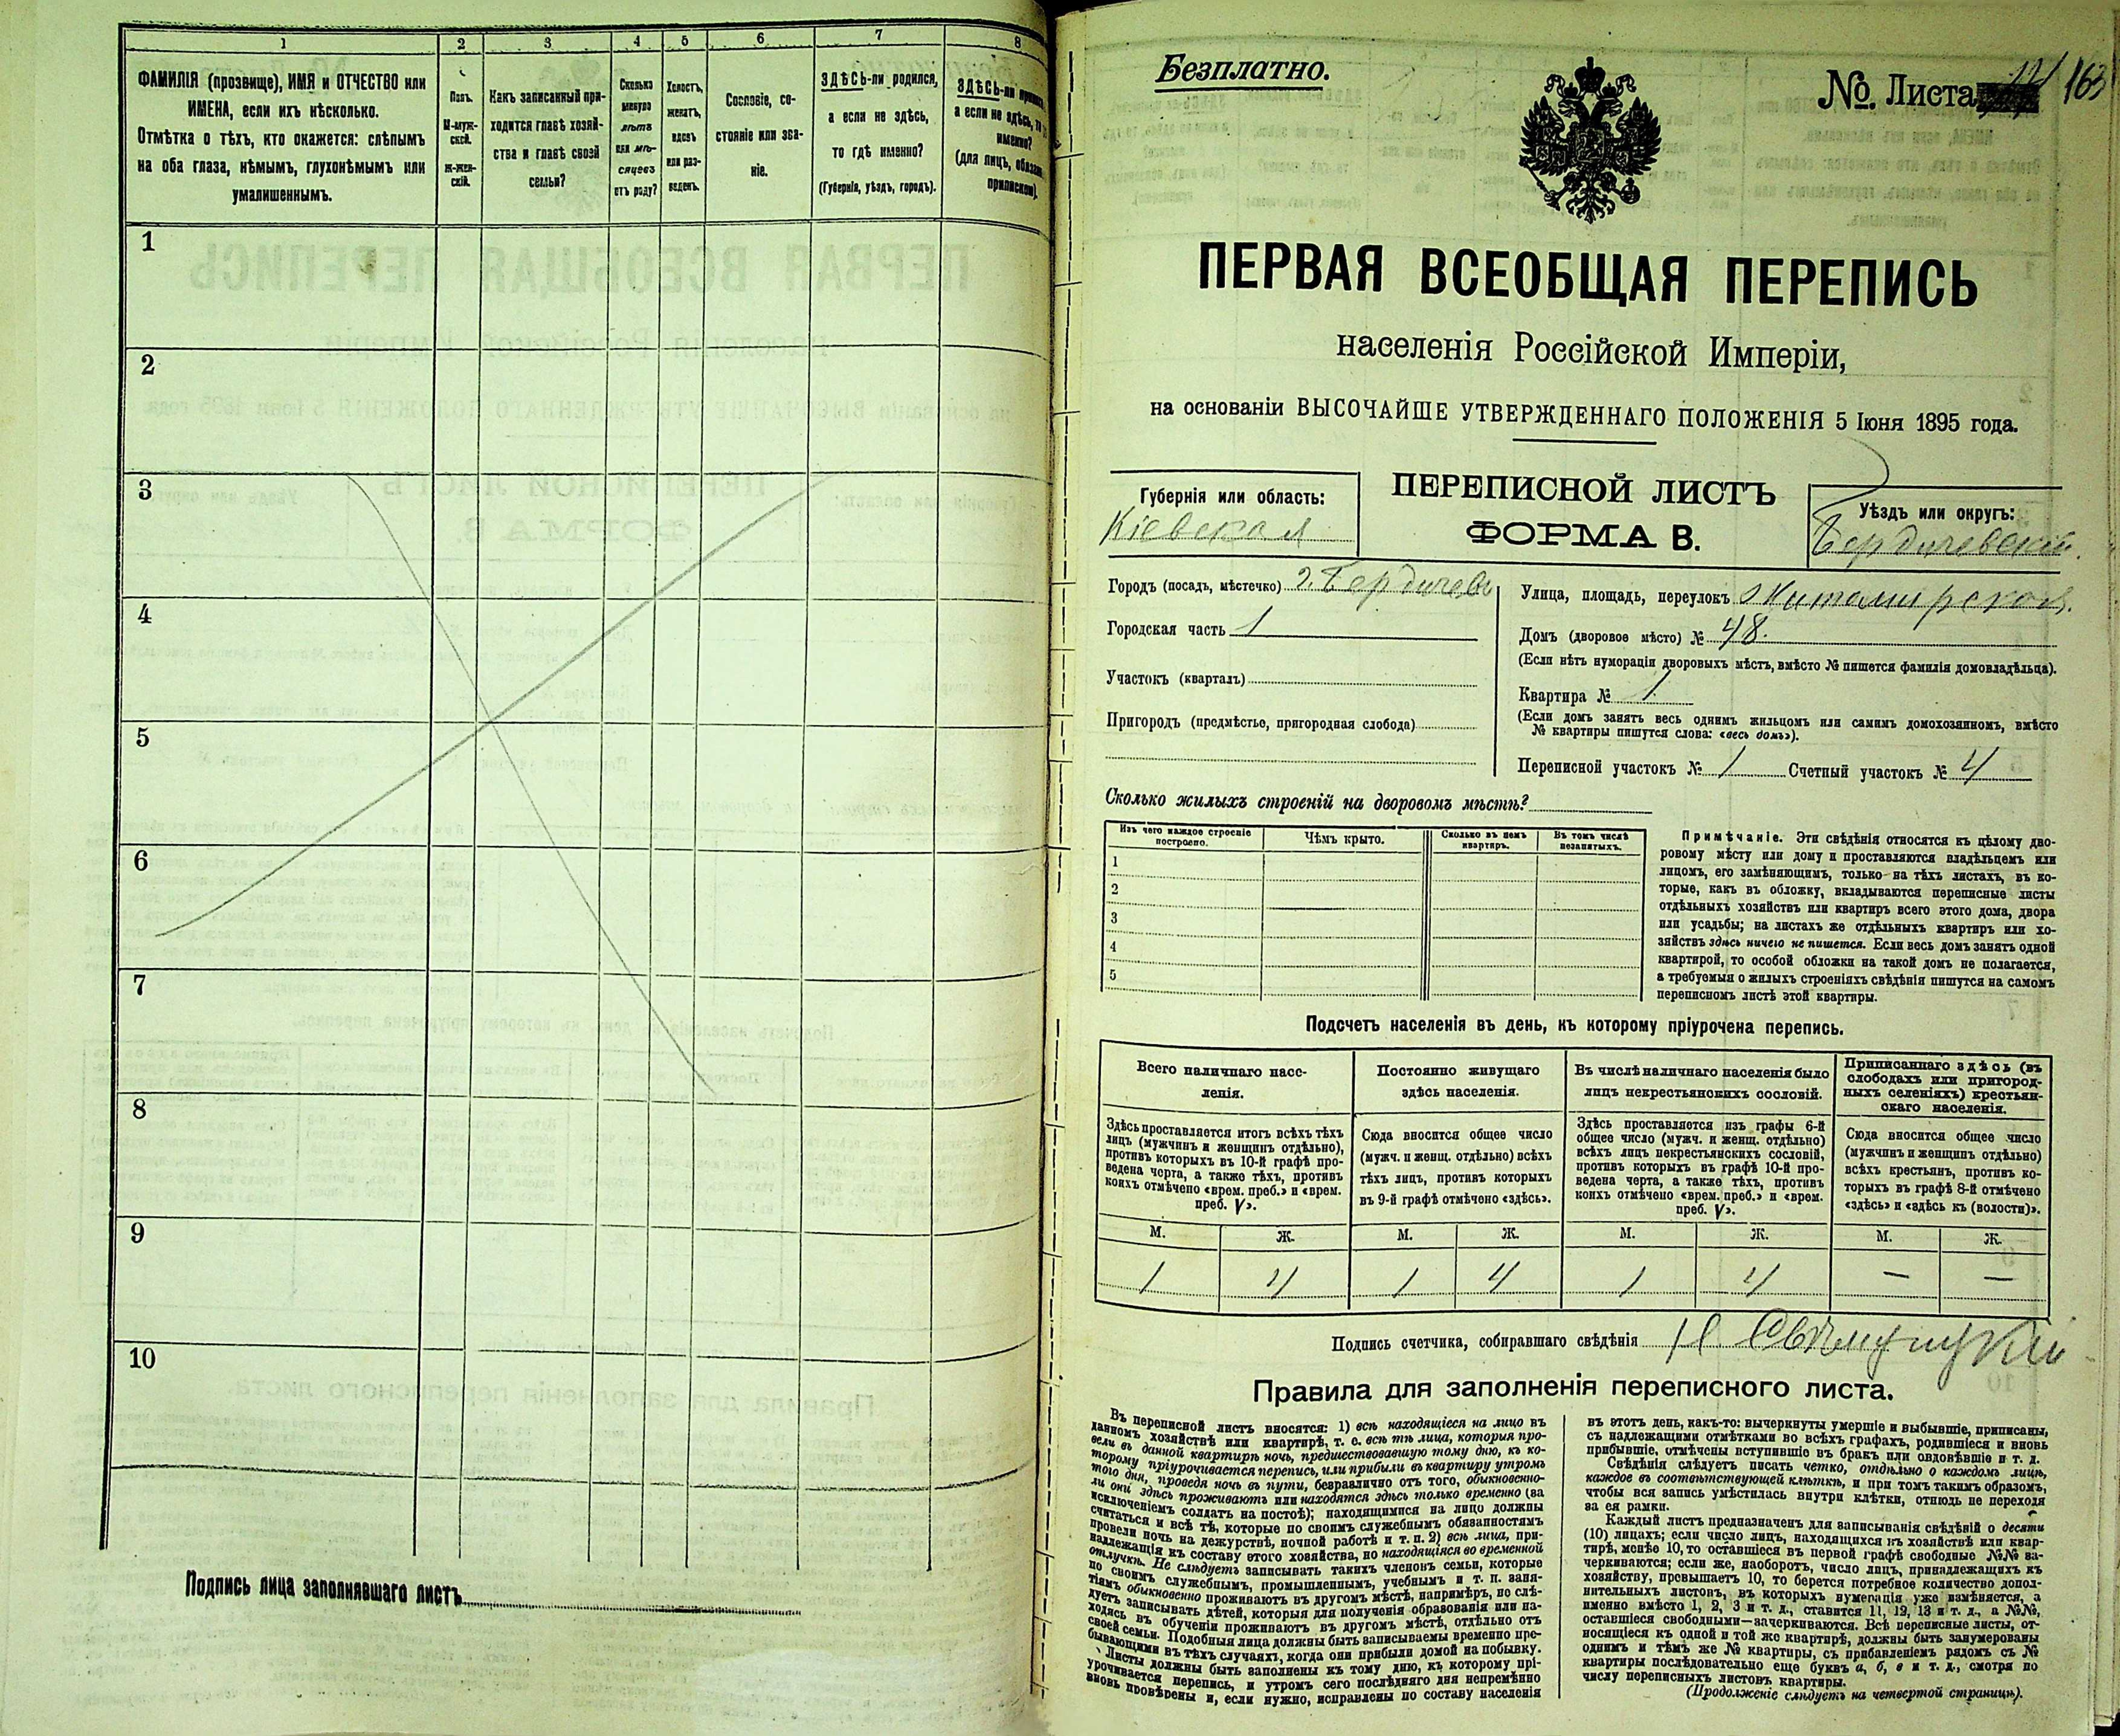 1 2 3 4 5 6 7 8
ФАМИЛІЯ (прозвище), ИМЯ и ОТЧЕСТВО или
ИМЕНА, если ихъ нѣсколько.
Отмѣтка о тѣхъ, кто окажется: слѣпымъ
на оба глаза, нѣмымъ, глухонѣмымъ или
умалишеннымъ.
Полъ.
М-муж-
ской.
Ж-жен-
скій.
Какъ записанный при-
ходится главѣ хозяй-
ства и главѣ своей
семьи?
Сколько
минуло
лѣтъ
или мѣ-
сяцевъ
отъ роду?
Холостъ,
женатъ,
вдовъ
или раз-
веденъ.
Сословіе, со-
стояніе или зва-
ніе.
ЗДѢСЬ-ли родился,
а если не здѣсь,
то гдѣ именно?
(Губернія, уѣздъ, городъ).
ЗДѢСЬ-ли
а если не здѣсь,
именно?
(для лицъ,
1
2
3
4
5
6
7
8
9
10
Подпись лица заполнявшаго листъ
Безплатно.
№. Листа 163
ПЕРВАЯ ВСЕОБЩАЯ ПЕРЕПИСЬ
населенія Россійской Имперіи,
на основаніи ВЫСОЧАЙШЕ УТВЕРЖДЕННАГО ПОЛОЖЕНІЯ 5 Іюня 1895 года.
Губернія или область:
Кіевская
ПЕРЕПИСНОЙ ЛИСТЪ
ФОРМА В.
Уѣздъ или округъ:
Бердичевскій
Городъ (посадъ, мѣстечко) г. Бердичевъ
Городская часть 1
Участокъ (кварталъ)
Пригородъ (предмѣстье, пригородная слобода)
Улица, площадь, переулокъ Житомирская
Домъ (дворовое мѣсто) № 48.
(Если нѣтъ нумораціи дворовыхъ мѣстъ, вмѣсто № пишется фамилія домовладѣльца).
Квартира № 1
(Если домъ занятъ весь однимъ жильцомъ или самимъ домохозяиномъ, вмѣсто
№ квартиры пишутся слова: «весь домъ»).
Переписной участокъ № 1 Счетный участокъ № 4
Сколько жилыхъ строеній на дворовомъ мѣстѣ?
Изъ чего каждое строеніе
построено.
Чѣмъ крыто.
Сколько въ немъ
квартиръ.
Въ томъ числѣ
незанятыхъ.
1
2
3
4
5
Примѣчаніе. Эти свѣдѣнія относятся къ цѣлому дво-
ровому мѣсту или дому и проставляются владѣльцемъ или
лицомъ, его замѣняющимъ, только на тѣхъ листахъ, въ ко-
торые, какъ въ обложку, вкладываются переписные листы
отдѣльныхъ хозяйствъ или квартиръ всего этого дома, двора
или усадьбы; на листахъ же отдѣльныхъ квартиръ или хо-
зяйствъ здѣсь ничего не пишется. Если весь домъ занятъ одной
квартирой, то особой обложки на такой домъ не полагается,
а требуемыя о жилыхъ строеніяхъ свѣдѣнія пишутся на самомъ
переписномъ листѣ этой квартиры.
Подсчетъ населенія въ день, къ которому пріурочена перепись.
Всего наличнаго насе-
ленія.
Здѣсь проставляется итогъ всѣхъ тѣхъ
лицъ (мужчинъ и женщинъ отдѣльно),
противъ которыхъ въ 10-й графѣ про-
ведена черта, а также тѣхъ, противъ
коихъ отмѣчено «врем. преб.» и «врем.
преб. V».
Постоянно живущаго
здѣсь населенія.
Сюда вносится общее число
(мужч. и женщ. отдѣльно) всѣхъ
тѣхъ лицъ, противъ которыхъ
въ 9-й графѣ отмѣчено «здѣсь».
Въ числѣ наличнаго населенія было
лицъ некрестьянскихъ сословій.
Здѣсь проставляется изъ графы 6-й
общее число (мужч. и женщ. отдѣльно)
всѣхъ лицъ некрестьянскихъ сословій,
противъ которыхъ въ графѣ 10-й про-
ведена черта, а также тѣхъ, противъ
коихъ отмѣчено «врем. преб.» и «врем.
преб. V».
Приписаннаго здѣсь (въ
слободахъ или пригород-
ныхъ селеніяхъ) крестьян-
скаго населенія.
Сюда вносится общее число
(мужчинъ и женщинъ отдѣльно)
всѣхъ крестьянъ, противъ ко-
торыхъ въ графѣ 8-й отмѣчено
«здѣсь» и «здѣсь къ (волости)».
М. Ж. М. Ж. М. Ж. М. Ж.
1 4 1 4 1 4 — —
Подпись счетчика, собиравшаго свѣдѣнія
Правила для заполненія переписного листа.
Въ переписной листъ вносятся: 1) всѣ находящіеся на лицо въ
данномъ хозяйствѣ или квартирѣ, т. е. всѣ тѣ лица, которыя про-
вели въ данной квартирѣ ночь, предшествовавшую тому дню, къ ко-
торому пріурочивается перепись, или прибыли въ квартиру утромъ
того дня, проведя ночь въ пути, безразлично отъ того, обыкновенно-
ли они здѣсь проживаютъ или находятся здѣсь только временно (за
исключеніемъ солдатъ на постоѣ); находящимися на лицо должны
считаться и всѣ тѣ, которые по своимъ служебнымъ обязанностямъ
провели ночь на дежурствѣ, ночной работѣ и т. п. 2) всѣ лица, при-
надлежащія къ составу этого хозяйства, но находящіяся во временной
отлучкѣ. Не слѣдуетъ записывать такихъ членовъ семьи, которые
по своимъ служебнымъ, промышленнымъ, учебнымъ и т. п. заня-
тіямъ обыкновенно проживаютъ въ другомъ мѣстѣ, напримѣръ, не слѣ-
дуетъ записывать дѣтей, которыя для полученія образованія или на-
ходясь въ обученіи проживаютъ въ другомъ мѣстѣ, отдѣльно отъ
своей семьи. Подобныя лица должны быть записываемы временно пре-
бывающими въ тѣхъ случаяхъ, когда они прибыли домой на побывку.
Листы должны быть заполнены къ тому дню, къ которому прі-
урочивается перепись, и утромъ сего послѣдняго дня непремѣнно
вновь провѣрены и, если нужно, исправлены по составу населенія
въ этотъ день, какъ-то: вычеркнуты умершіе и выбывшіе, приписаны,
съ надлежащими отмѣтками во всѣхъ графахъ, родившіеся и вновь
прибывшіе, отмѣчены вступившіе въ бракъ или овдовѣвшіе и т. д.
Свѣдѣнія слѣдуетъ писать четко, отдѣльно о каждомъ лицѣ,
каждое въ соотвѣтствующей клѣткѣ, и при томъ такимъ образомъ,
чтобы вся запись умѣстилась внутри клѣтки, отнюдь не переходя
за ея рамки.
Каждый листъ предназначенъ для записыванія свѣдѣній о десяти
(10) лицахъ; если число лицъ, находящихся въ хозяйствѣ или квар-
тирѣ, менѣе 10, то оставшіеся въ первой графѣ свободные №№ за-
черкиваются; если же, наоборотъ, число лицъ, принадлежащихъ къ
хозяйству, превышаетъ 10, то берется потребное количество допол-
нительныхъ листовъ, въ которыхъ нумерація уже измѣняется, а
именно вмѣсто 1, 2, 3 и т. д., ставится 11, 12, 13 и т. д., а №№,
оставшіеся свободными—зачеркиваются. Всѣ переписные листы, от-
носящіеся къ одной и той же квартирѣ, должны быть занумерованы
однимъ и тѣмъ же № квартиры, съ прибавленіемъ рядомъ съ №
квартиры послѣдовательно еще буквъ а, б, в и т. д., смотря по
числу переписныхъ листовъ квартиры.
(Продолженіе слѣдуетъ на четвертой страницѣ).